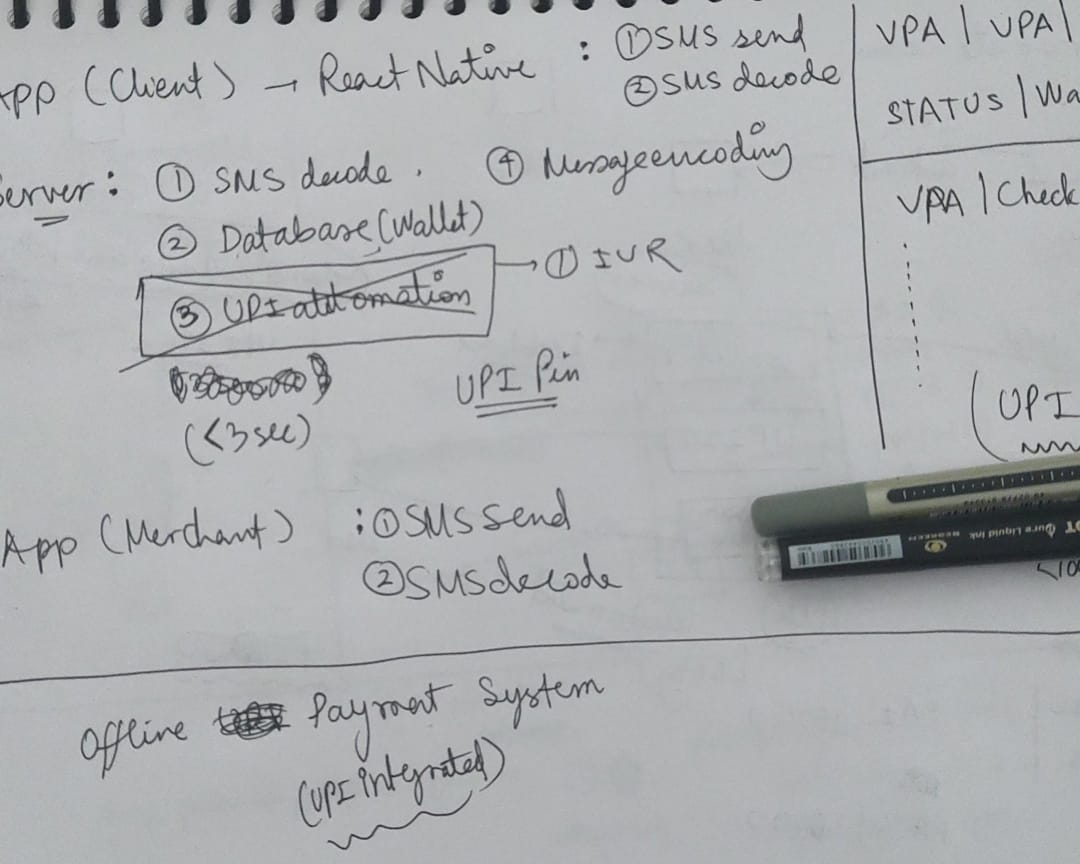 App (Client) → React Native : ① SMS send
② SMS decode
Server: ① SMS decode. ④ Messageencoding
② Database (Wallet)
③ UPI automation → ① IVR
(<3 sec)
UPI Pin
App (Merchant) : ① SMS Send
② SMS decode
Offline Payment System
(UPI integrated)
VPA | VPA |
STATUS | Wa
VPA | Check
(UPI
Pure Liquid Ink
<10